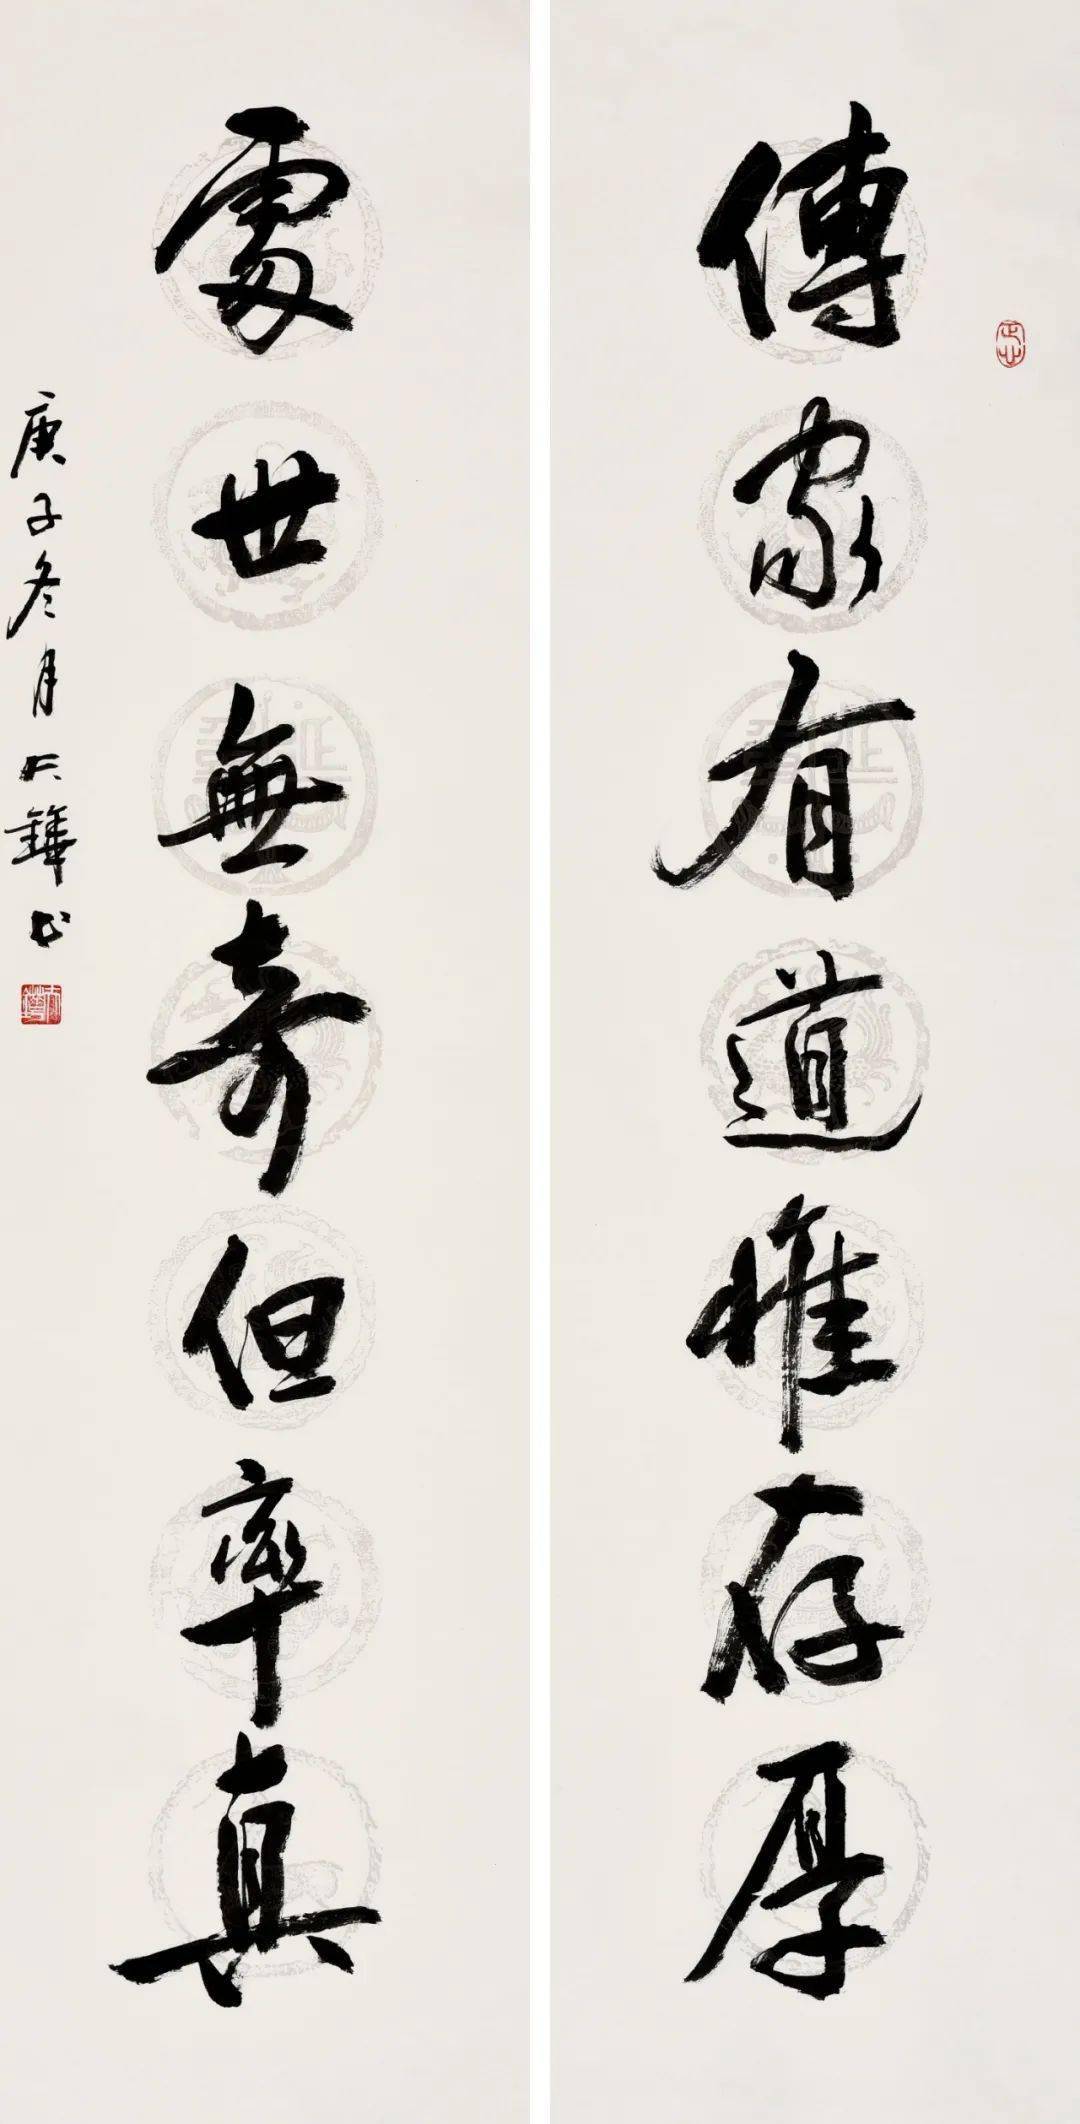 傳家有道惟存厚
處世無奇但率真
庚子冬月大鏵书